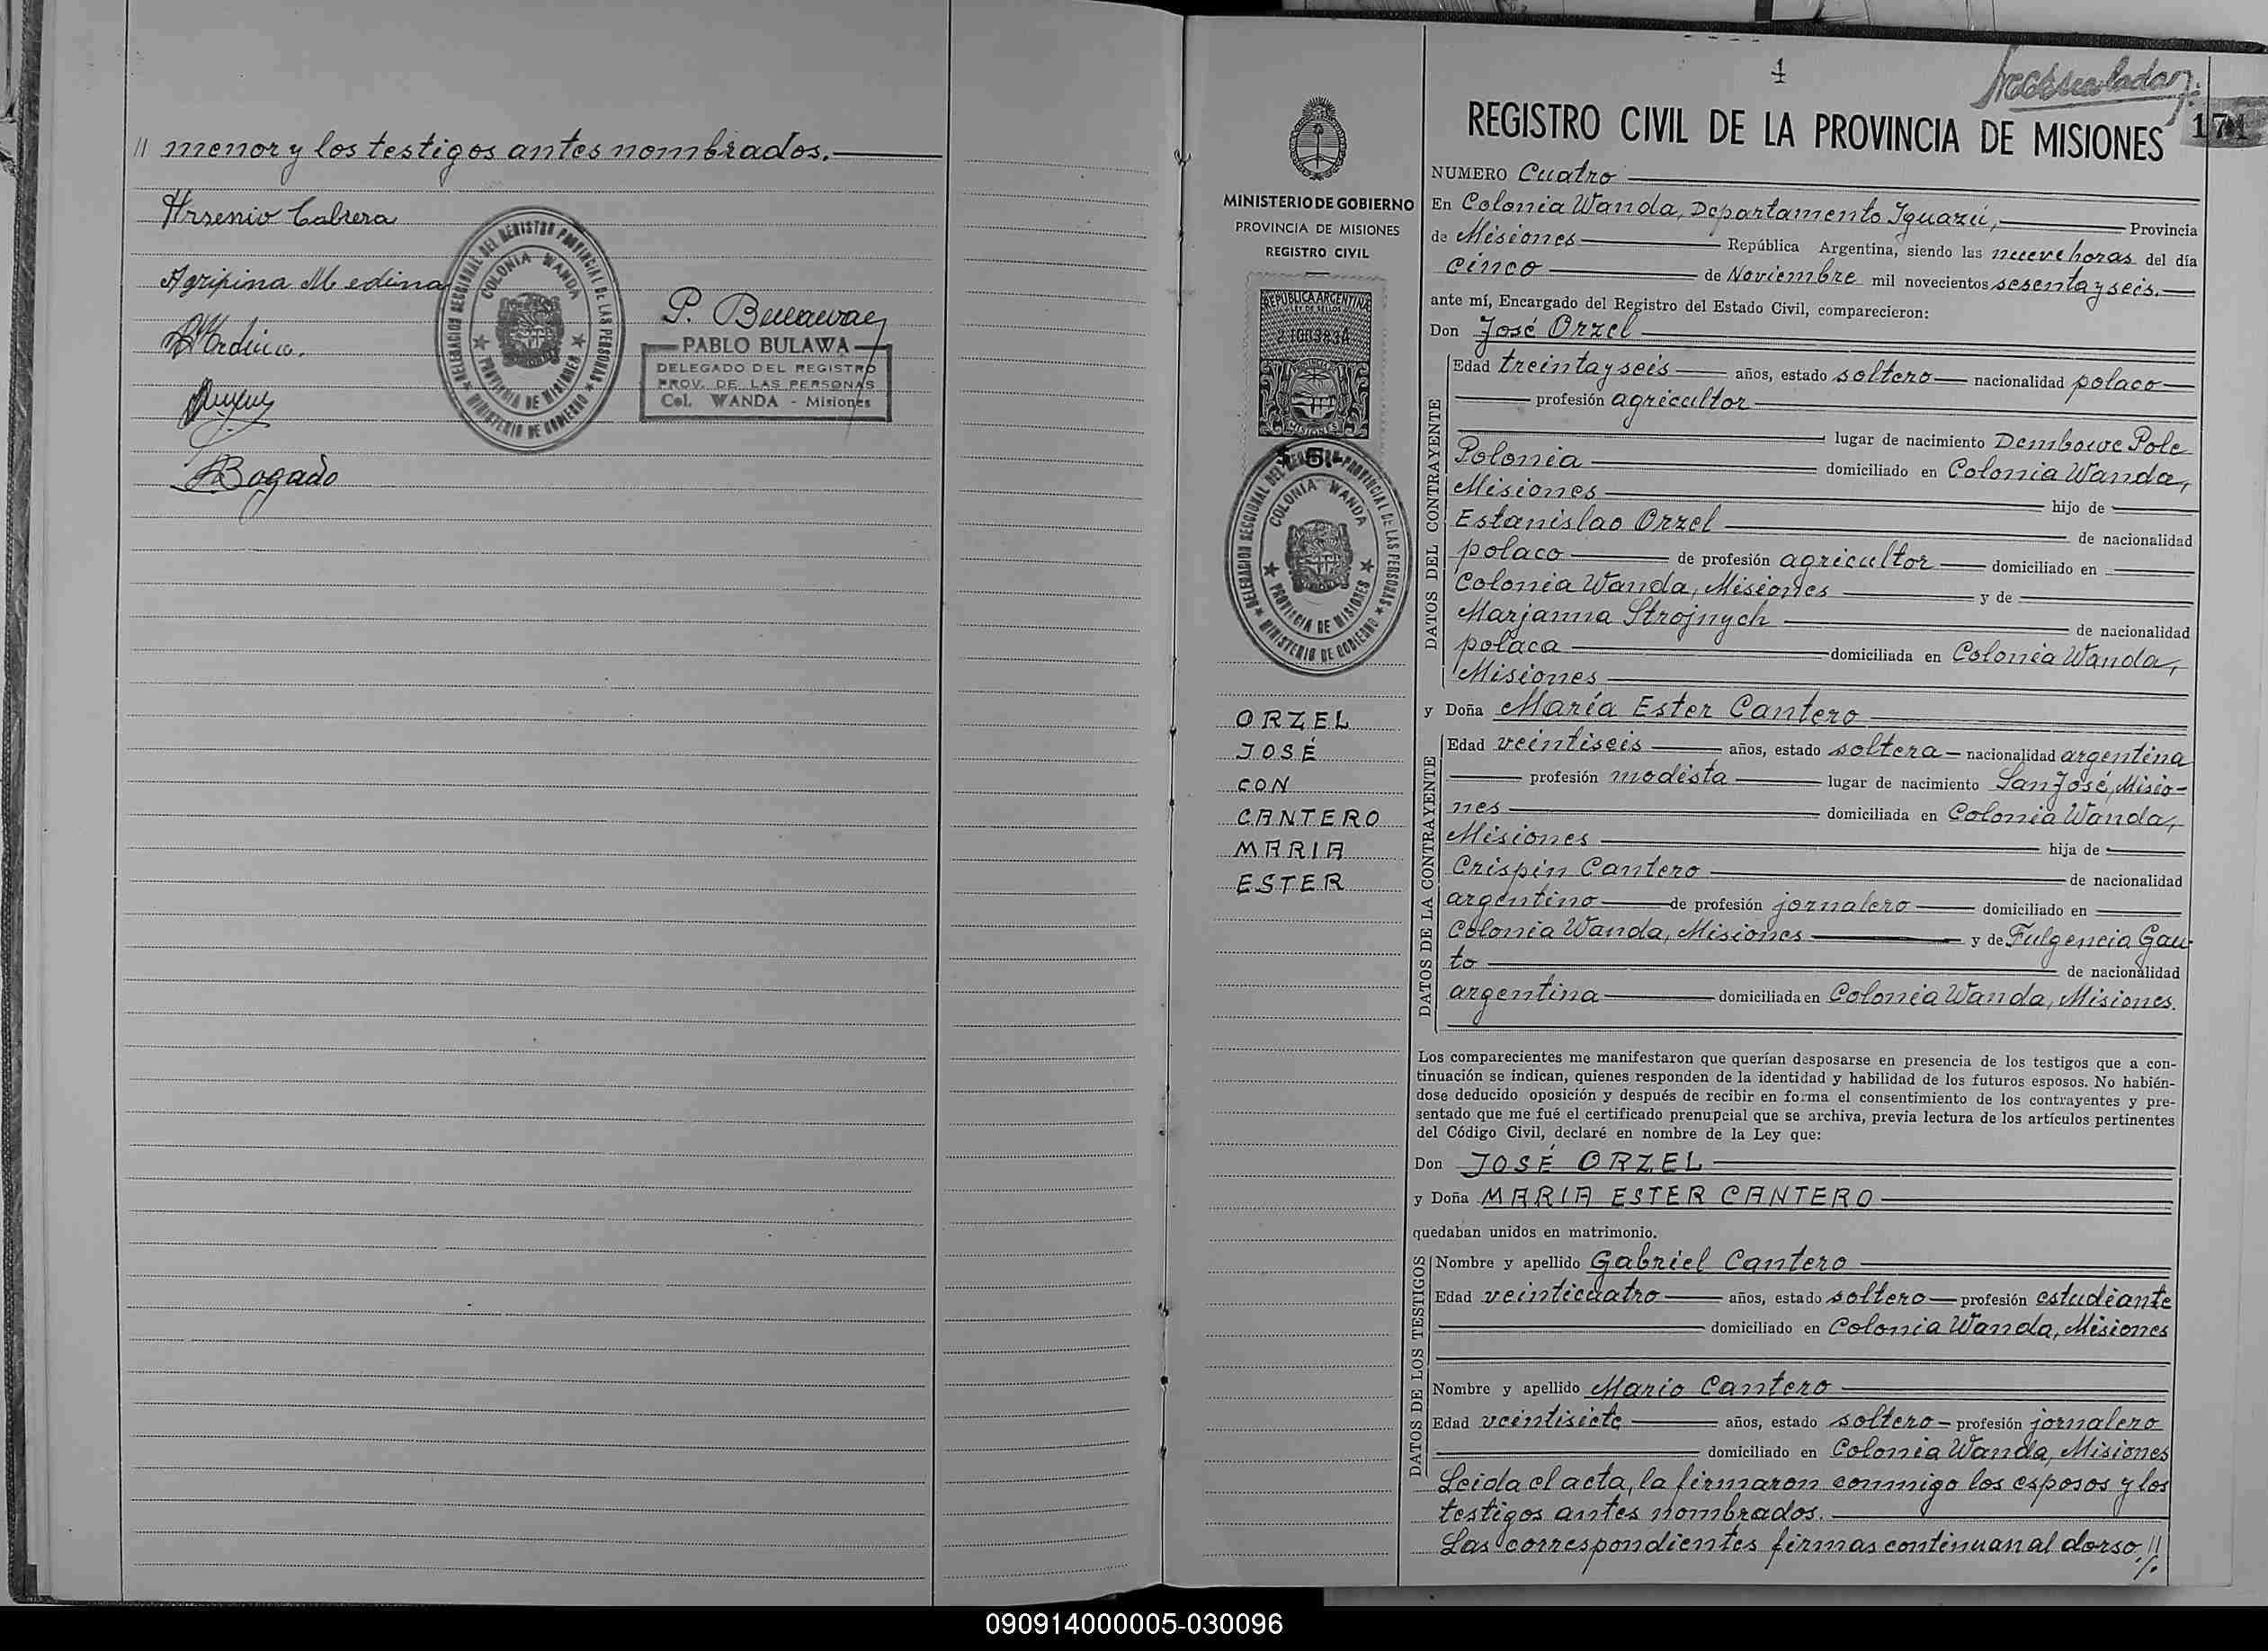 // menor y los testigos antes nombrados.
Arsenio Cabrera
Agripina Medina
P. Bulawa
PABLO BULAWA
DELEGADO DEL REGISTRO
PROV. DE LAS PERSONAS
Col. WANDA - Misiones
DELEGACION SECCIONAL DEL REGISTRO PROVINCIAL DE LAS PERSONAS
COLONIA WANDA
PROVINCIA DE MISIONES
MINISTERIO DE GOBIERNO
Bogado
4
171
REGISTRO CIVIL DE LA PROVINCIA DE MISIONES
MINISTERIO DE GOBIERNO
PROVINCIA DE MISIONES
REGISTRO CIVIL
REPUBLICA ARGENTINA
LEY DE SELLOS
MISIONES
$ 5.-
DELEGACION SECCIONAL DEL REGISTRO PROVINCIAL DE LAS PERSONAS
COLONIA WANDA
PROVINCIA DE MISIONES
MINISTERIO DE GOBIERNO
ORZEL
JOSÉ
CON
CANTERO
MARIA
ESTER
NUMERO Cuatro
En Colonia Wanda, Departamento Iguazú, Provincia
de Misiones República Argentina, siendo las nueve horas del día
cinco de Noviembre mil novecientos sesenta y seis.
ante mí, Encargado del Registro del Estado Civil, comparecieron:
Don José Orzel
DATOS DEL CONTRAYENTE
Edad treinta y seis años, estado soltero nacionalidad polaco
profesión agricultor
lugar de nacimiento Dembowe Pole
Polonia domiciliado en Colonia Wanda,
Misiones hijo de
Estanislao Orzel de nacionalidad
polaco de profesión agricultor domiciliado en
Colonia Wanda, Misiones y de
Marjanna Strojnych de nacionalidad
polaca domiciliada en Colonia Wanda,
Misiones
y Doña María Ester Cantero
DATOS DE LA CONTRAYENTE
Edad veintiseis años, estado soltera nacionalidad argentina
profesión modista lugar de nacimiento San José, Misio-
nes domiciliada en Colonia Wanda,
Misiones hija de
Crispin Cantero de nacionalidad
argentino de profesión jornalero domiciliado en
Colonia Wanda, Misiones y de Fulgencia Gau-
to de nacionalidad
argentina domiciliada en Colonia Wanda, Misiones.
Los comparecientes me manifestaron que querían desposarse en presencia de los testigos que a con-
tinuación se indican, quienes responden de la identidad y habilidad de los futuros esposos. No habién-
dose deducido oposición y después de recibir en forma el consentimiento de los contrayentes y pre-
sentado que me fué el certificado prenupcial que se archiva, previa lectura de los artículos pertinentes
del Código Civil, declaré en nombre de la Ley que:
Don JOSÉ ORZEL
y Doña MARIA ESTER CANTERO
quedaban unidos en matrimonio.
DATOS DE LOS TESTIGOS
Nombre y apellido Gabriel Cantero
Edad veinticuatro años, estado soltero profesión estudiante
domiciliado en Colonia Wanda, Misiones
Nombre y apellido Mario Cantero
Edad veintisiete años, estado soltero profesión jornalero
domiciliado en Colonia Wanda, Misiones
Leida el acta, la firmaron conmigo los esposos y los
testigos antes nombrados.
Las correspondientes firmas continuan al dorso. //.
090914000005-030096